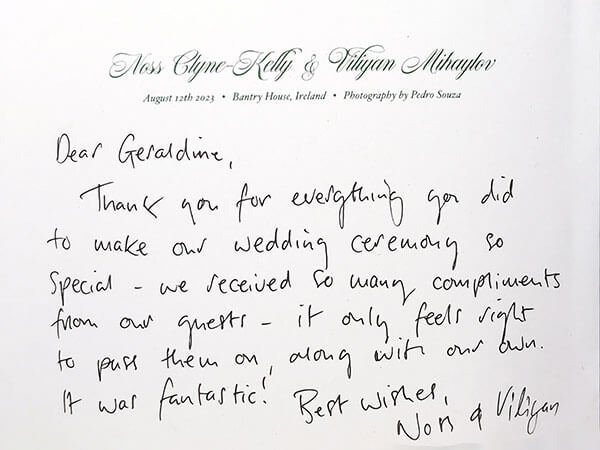 Noss Clyne-Kelly & Viliyan Mihaylov
August 12th 2023 • Bantry House, Ireland • Photography by Pedro Souza
Dear Geraldine,
Thank you for everything you did
to make our wedding ceremony so
special - we received so many compliments
from our guests - it only feels right
to pass them on, along with our own.
It was fantastic! Best wishes,
Noss & Viliyan